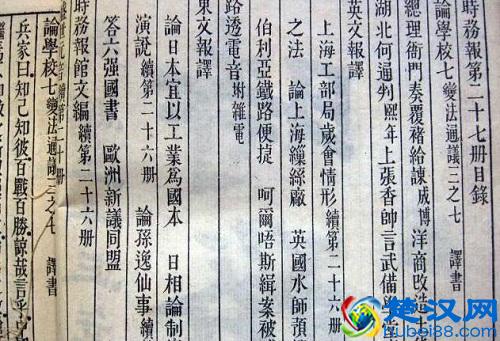 第二十七册目錄
論學校七變法通議三之七 譯書
總理衙門奏覆褚給諫成博 洋商改造土
湖北何通判熙年上張香帥言武備學堂
英文報譯
上海工部局歲會情形續第二十六册
之法 論上海繅絲廠 英國水師預
伯利亞鐵路便捷 呵爾唔斯緝案被
路透電音附雜電
東文報譯
論日本宜以工業爲國本 日相論制
演說續第二十六册 論孫逸仙事續
答六强國書 歐洲新議同盟
時務報館文編續第二十六册
續第二十册
論學校七變法通議三之七 譯書
兵家曰知己知彼百戰百勝諒哉言乎
楚汉网
hubei88.com